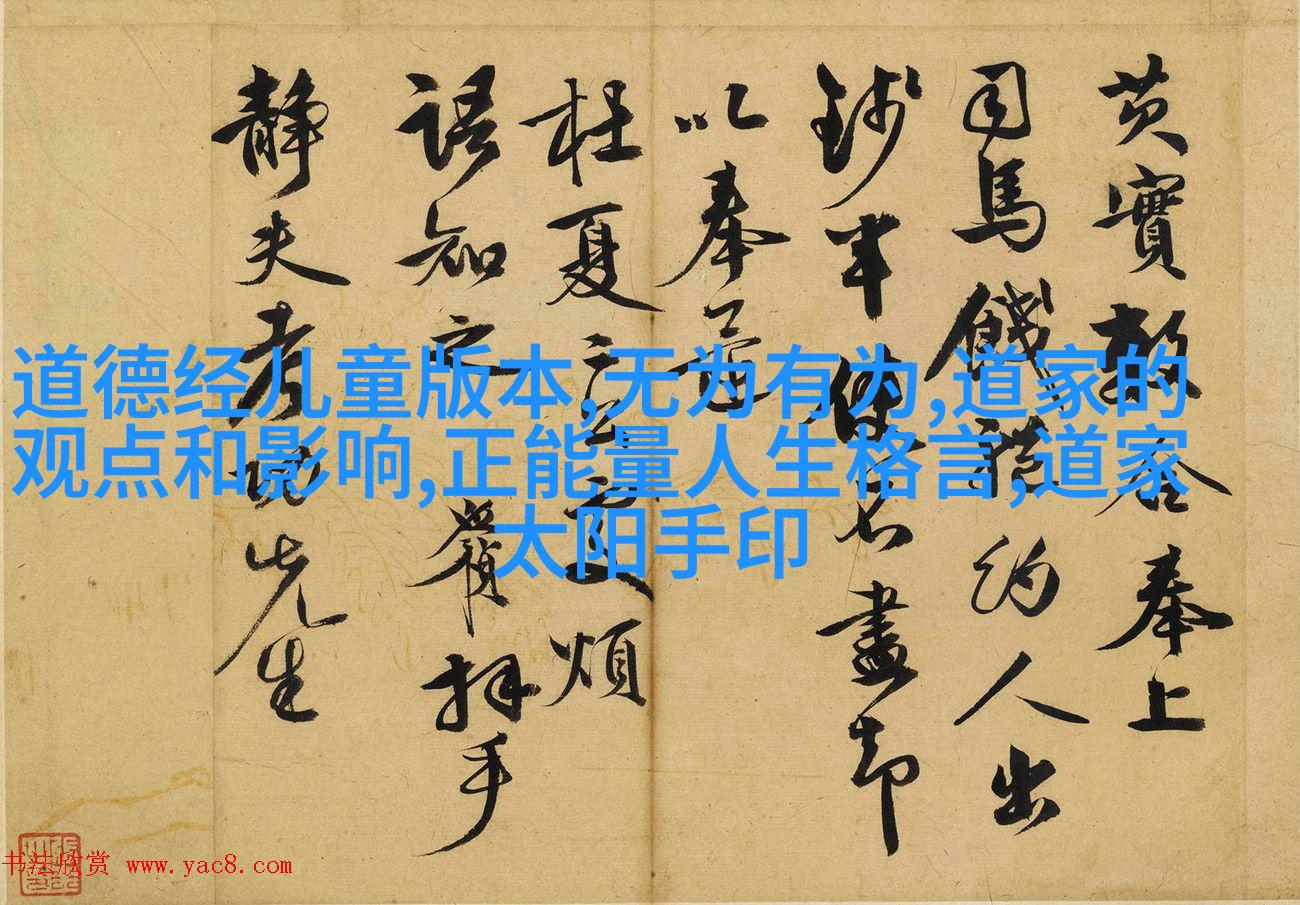 芡實數合奉上
司馬 人出
半 盡却
以奉
枉夏 煩
語知之 拜手
静夫老兄先生
道德经儿童版本,无为有为,道家的
观点和影响,正能量人生格言,道家
太阳手印
书法欣赏 www.yac8.com